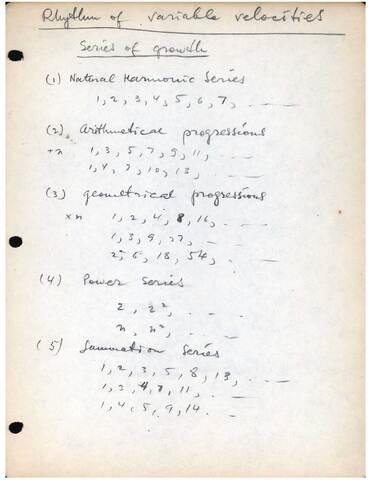 Rhythm of variable velocities
Series of growth
(1) Natural Harmonic Series
1, 2, 3, 4, 5, 6, 7, . ——
(2) Arithmetical progressions
+n 1, 3, 5, 7, 9, 11, . ——
1, 4, 7, 10, 13, . . ——
(3) geometrical progressions
×n 1, 2, 4, 8, 16, . . ——
1, 3, 9, 27, . . ——
2, 6, 18, 54, . . ——
(4) Power Series
2, 2², . . .
n, n², . . .
(5) Summation Series
1, 2, 3, 5, 8, 13, . ——
1, 3, 4, 7, 11, . . ——
1, 4, 5, 9, 14 . .